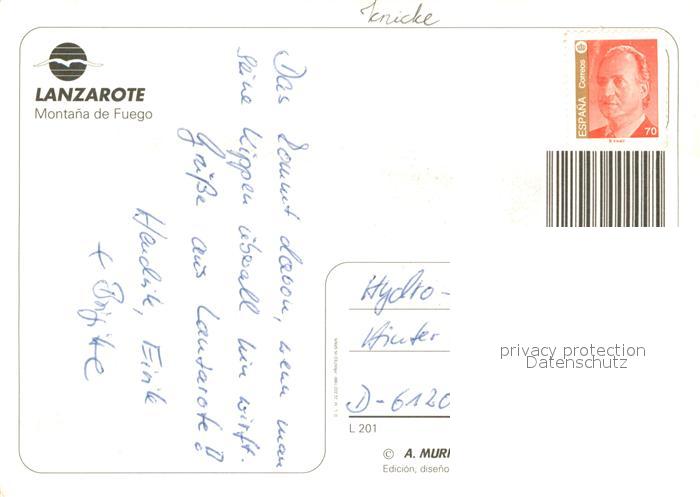 Knicke
LANZAROTE
Montaña de Fuego
Das kommt davon, wenn man
seine Kippen überall hin wirft.
Grüße aus Lanzarote!
Hendrik, Eirik
+ Brigitte
ESPAÑA
Correos
70
Hydro-
Hinter
D-6120
L 201
© A. MURI
Edición, diseño
privacy protection
Datenschutz